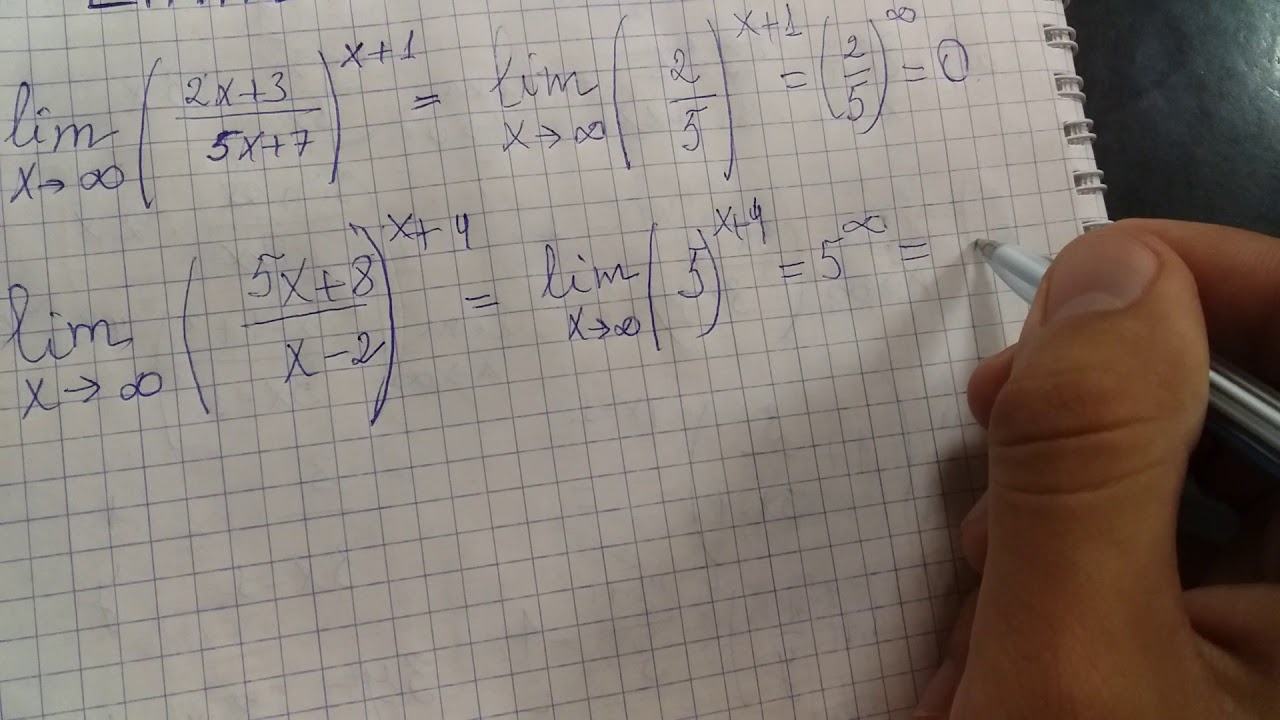 lim x→∞ ((2x+3)/(5x+7))^(x+1) = lim x→∞ (2/5)^(x+1) = (2/5)^∞ = 0
lim x→∞ ((5x+8)/(x-2))^(x+4) = lim x→∞ (5)^(x+4) = 5^∞ =